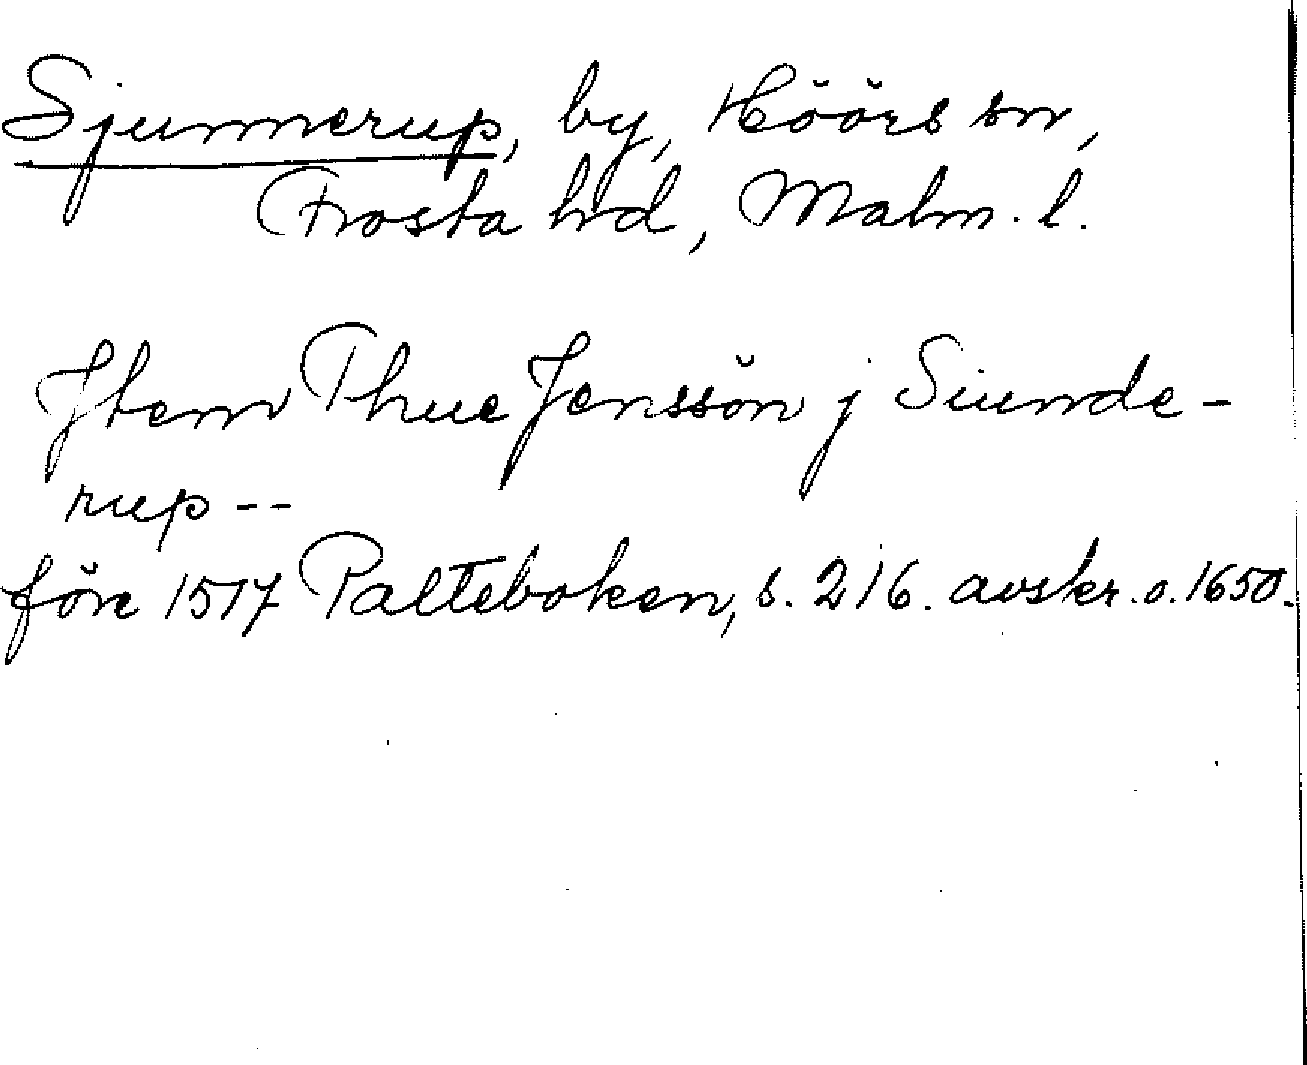 Sjunnerup, by, Höörs sn,
Frosta hd, Malm. l.
Jtem Thue Jenssön j Siunde-
rup --
före 1517 Palteboken, s. 216. avskr. o. 1650.